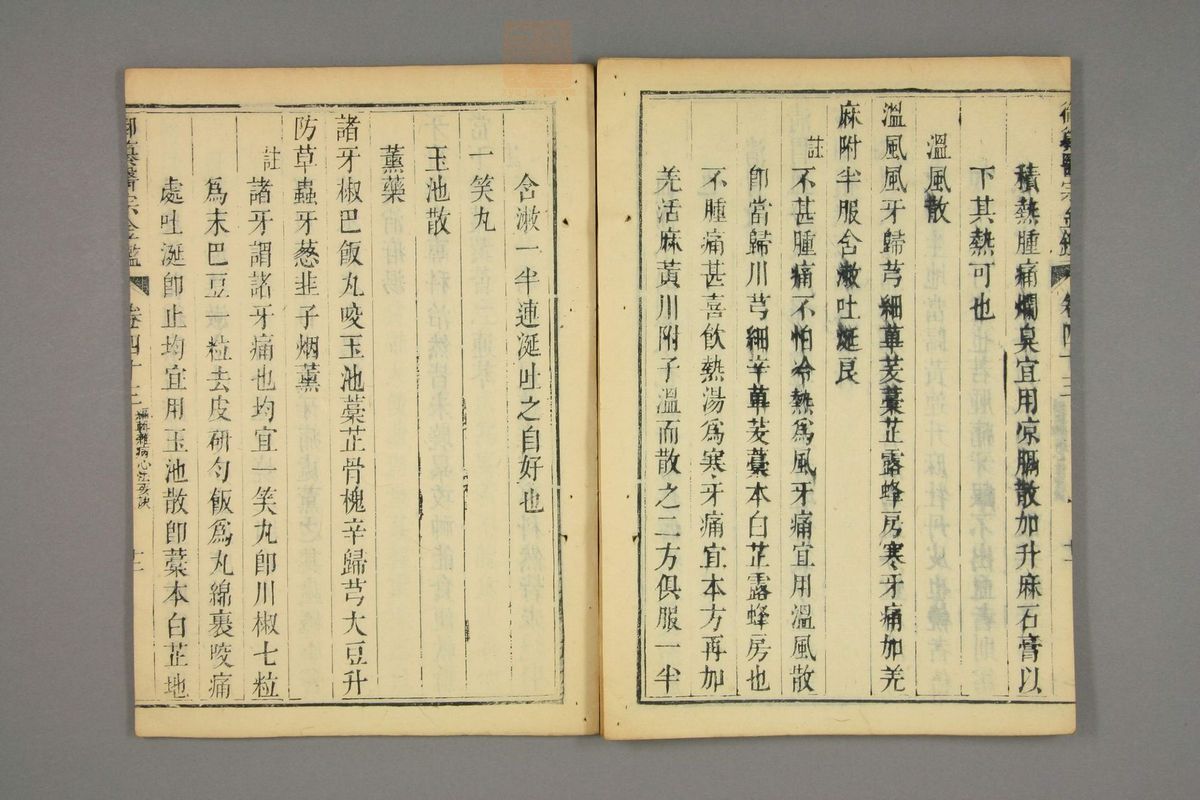 御纂醫宗金鑑 卷四十三
積熱腫痛爛臭宜用凉膈散加升麻石膏以
下其熱可也
溫風散
溫風風牙歸芎細蓽茇藁芷露蜂房寒牙痛加羌
麻附半服含漱吐涎良
註
不甚腫痛不怕冷熱爲風牙痛宜用溫風散
卽當歸川芎細辛蓽茇藁本白芷露蜂房也
不腫痛甚喜飮熱湯爲寒牙痛宜本方再加
羌活麻黃川附子溫而散之二方俱服一半
含漱一半連涎吐之自好也
一笑丸
玉池散
薰藥
諸牙椒巴飯丸咬玉池藁芷骨槐辛歸芎大豆升
防草蟲牙葱韭子烟薰
註
諸牙謂諸牙痛也均宜一笑丸卽川椒七粒
爲末巴豆一粒去皮硏匀飯爲丸綿裹咬痛
處吐涎卽止均宜用玉池散卽藁本白芷地
御纂醫宗金鑑 卷四十三 編輯雜病心法要訣